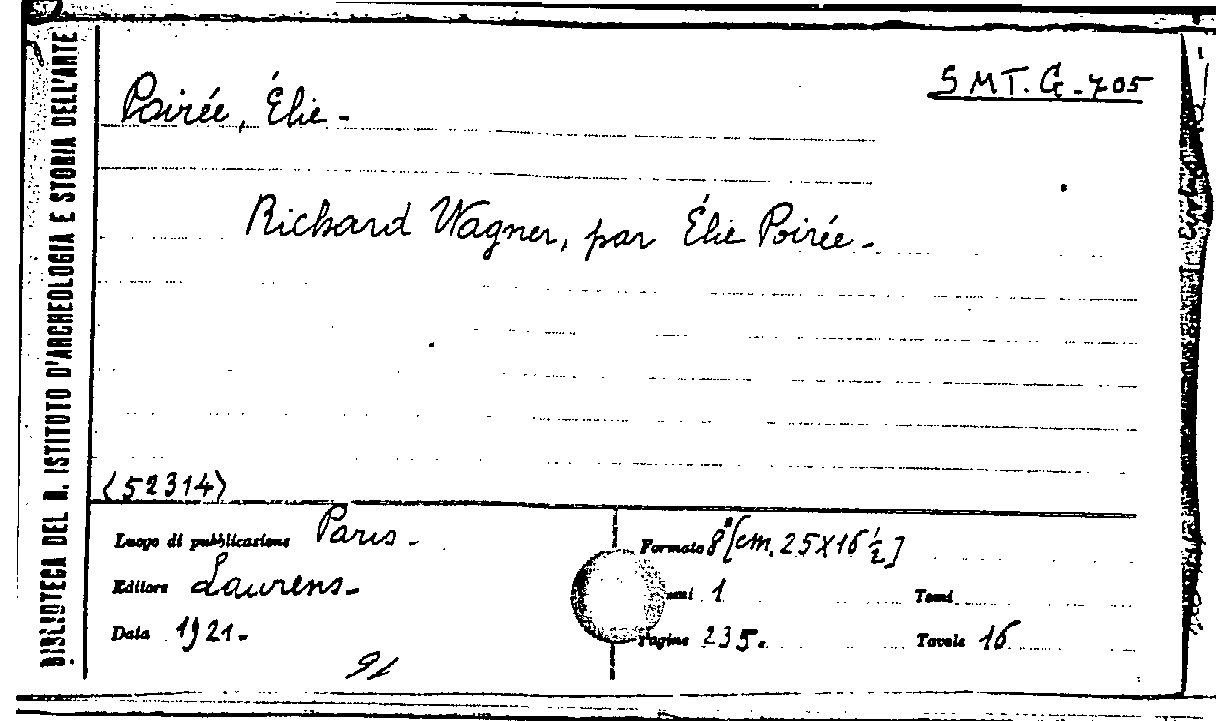 SMT. G-705
Poirée, Élie -
Richard Wagner, par Élie Poirée -
BIBLIOTECA DEL R. ISTITUTO D'ARCHEOLOGIA E STORIA DELL'ARTE
(52314)
Luogo di pubblicazione Paris -
Editore Laurens -
Data 1921 -
Formato 8° [cm. 25x16 ½]
1 Tomi
Pagine 235. Tavole 16